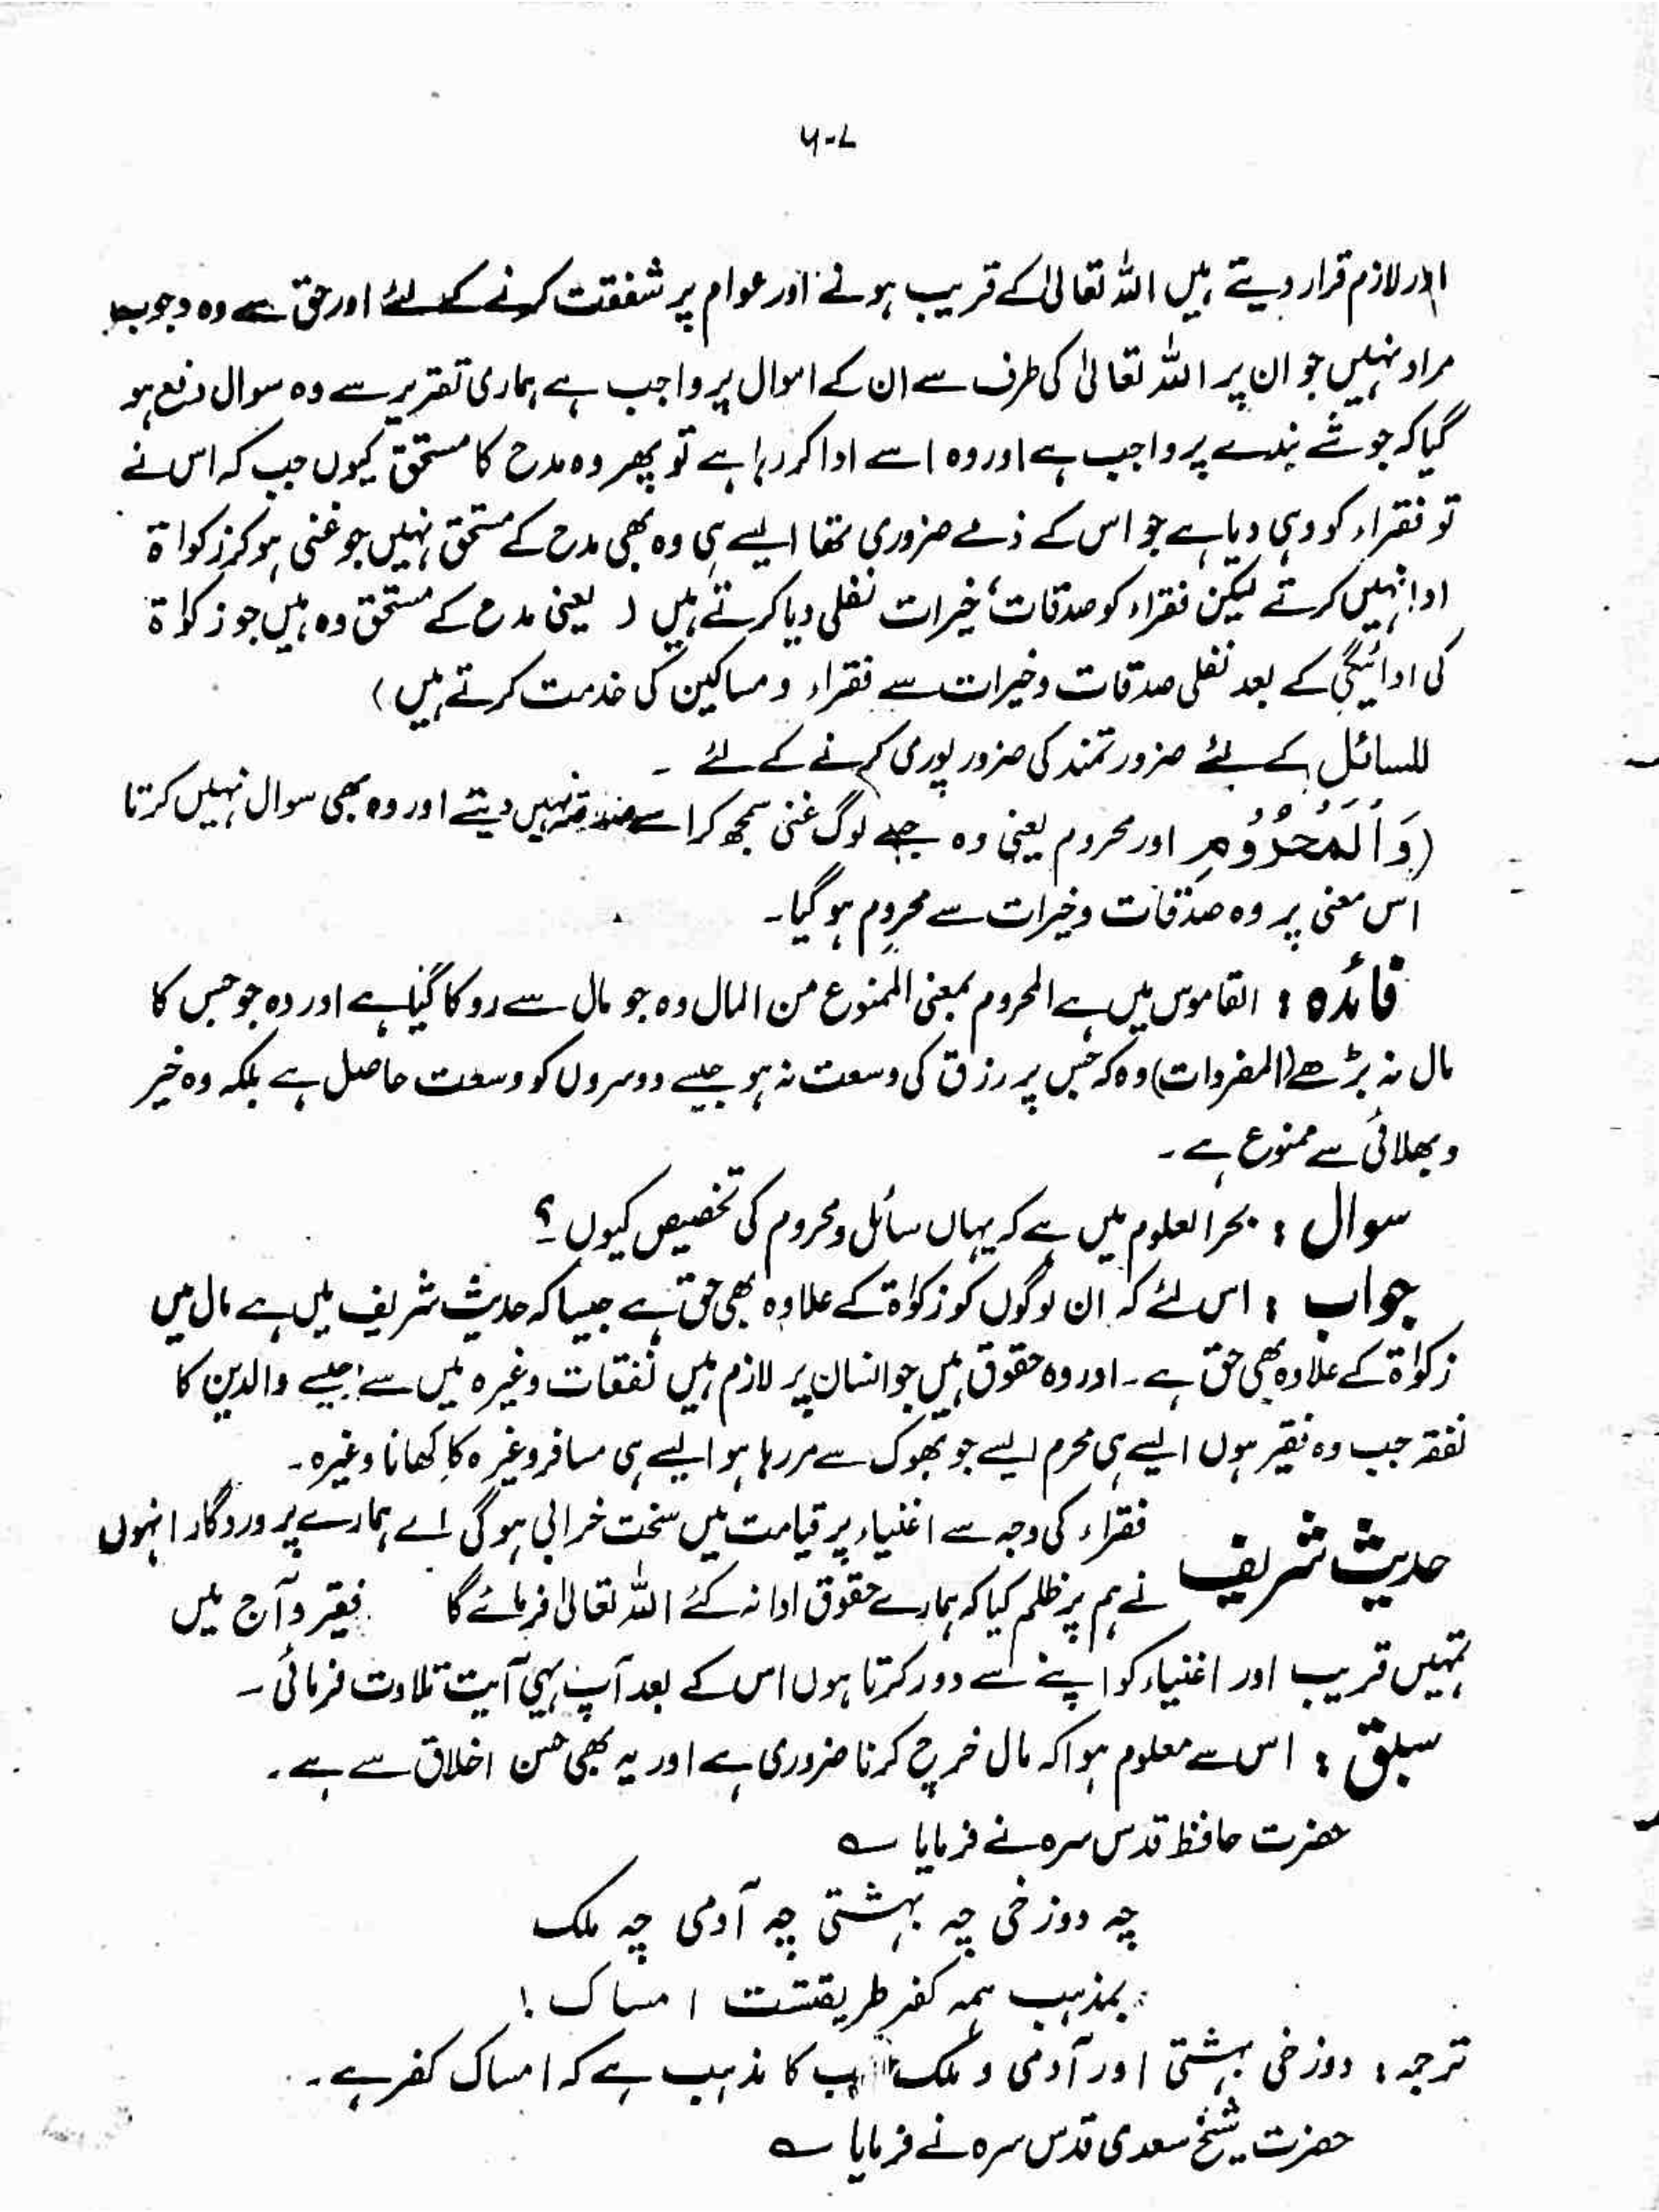 ۶۰۷
اور لازم قرار دیتے ہیں اللہ تعالیٰ کے قریب ہونے اور عوام پر شفقت کرنے کے لئے اور حق سے وہ وجوب
مراد نہیں جو ان پر اللہ تعالیٰ کی طرف سے ان کے اموال پر واجب ہے ہماری تقریر سے وہ سوال دفع ہو
گیا کہ جو شے بندے پر واجب ہے اور وہ اسے ادا کر رہا ہے تو پھر وہ مدح کا مستحق کیوں جب کہ اس نے
تو فقراء کو وہی دیا ہے جو اس کے ذمے ضروری تھا ایسے ہی وہ بھی مدح کے مستحق نہیں جو غنی ہو کر زکواۃ
ادا نہیں کرتے لیکن فقراء کو صدقات، خیرات نفلی دیا کرتے ہیں ( یعنی مدح کے مستحق وہ ہیں جو زکواۃ
کی ادائیگی کے بعد نفلی صدقات و خیرات سے فقراء و مساکین کی خدمت کرتے ہیں )
للسائل کے لئے ضرورتمند کی ضرور پوری کرنے کے لئے ۔
(وَالْمَحْرُوْمِ اور محروم یعنی وہ جسے لوگ غنی سمجھ کر اسے صدقہ نہیں دیتے اور وہ بھی سوال نہیں کرتا
اس معنی پر وہ صدقات و خیرات سے محروم ہو گیا۔
فائدہ : القاموس میں ہے المحروم بمعنی الممنوع من المال وہ جو مال سے روکا گیا ہے اور وہ جو جس کا
مال نہ بڑھے (المفردات) وہ کہ جس پر رزق کی وسعت نہ ہو جیسے دوسروں کو وسعت حاصل ہے بلکہ وہ خیر
و بھلائی سے ممنوع ہے ۔
سوال : بحر العلوم میں ہے کہ یہاں سائل و محروم کی تخصیص کیوں ؟
جواب : اس لئے کہ ان لوگوں کو زکواۃ کے علاوہ بھی حق ہے جیسا کہ حدیث شریف میں ہے مال میں
زکواۃ کے علاوہ بھی حق ہے ۔ اور وہ حقوق ہیں جو انسان پر لازم ہیں نفقات وغیرہ میں سے جیسے والدین کا
نفقہ جب وہ فقیر ہوں ایسے ہی محرم ایسے جو بھوک سے مر رہا ہو ایسے ہی مسافر وغیرہ کا کھانا وغیرہ ۔
حدیث شریف فقراء کی وجہ سے اغنیاء پر قیامت میں سخت خرابی ہو گی اے ہمارے پروردگار انہوں
نے ہم پر ظلم کیا کہ ہمارے حقوق ادا نہ کئے اللہ تعالیٰ فرمائے گا فقیرو آج میں
تمہیں قریب اور اغنیاء کو اپنے سے دور کرتا ہوں اس کے بعد آپ یہی آیت تلاوت فرمائی ۔
سبلق : اس سے معلوم ہوا کہ مال خرچ کرنا ضروری ہے اور یہ بھی حسن اخلاق سے ہے ۔
حضرت حافظ قدس سرہ نے فرمایا ؎
چہ دوزخی چہ بہشتی چہ آدمی چہ ملک
بمذہب ہمہ کفر طریقتست امساک !
ترجمہ : دوزخی بہشتی اور آدمی و ملک سب کا مذہب ہے کہ امساک کفر ہے ۔
حضرت شیخ سعدی قدس سرہ نے فرمایا ؎